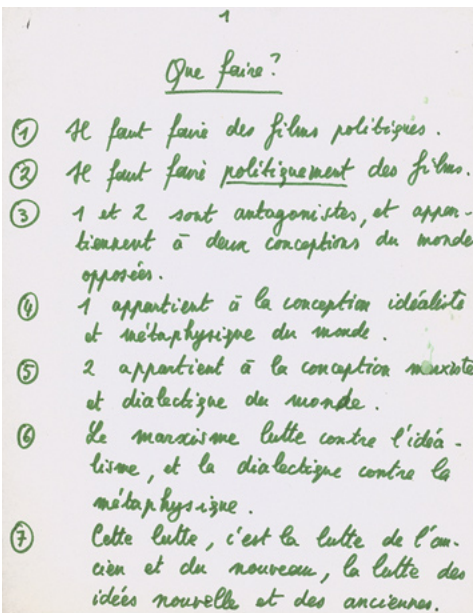 1
Que faire?
① Il faut faire des films politiques.
② Il faut faire politiquement des films.
③ 1 et 2 sont antagonistes, et appar-
tiennent à deux conceptions du monde
opposées.
④ 1 appartient à la conception idéaliste
et métaphysique du monde.
⑤ 2 appartient à la conception marxiste
et dialectique du monde.
⑥ Le marxisme lutte contre l'idéa-
lisme, et la dialectique contre la
métaphysique.
⑦ Cette lutte, c'est la lutte de l'an-
cien et du nouveau, la lutte des
idées nouvelle et des anciennes.